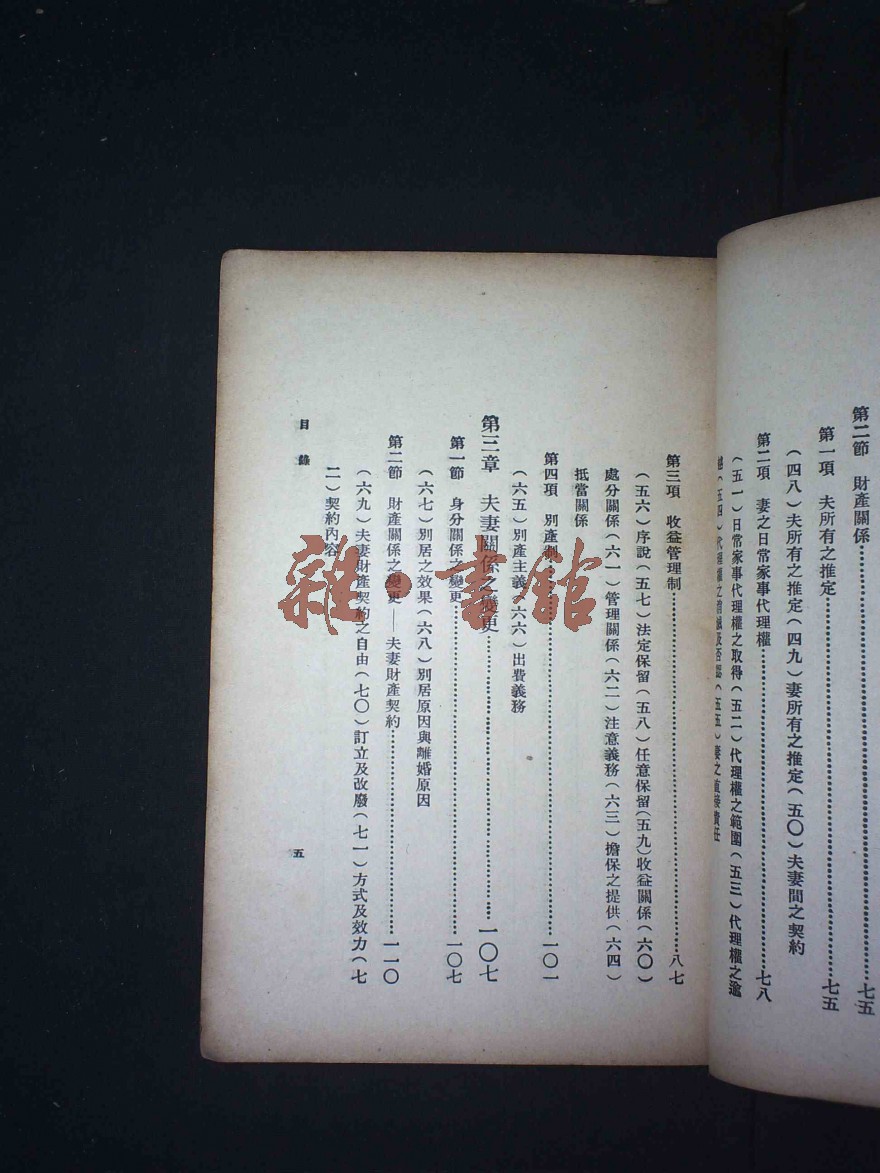 第二節　財產關係…………七五
第一項　夫所有之推定…………七五
（四八）夫所有之推定（四九）妻所有之推定（五〇）夫妻間之契約
第二項　妻之日常家事代理權…………七八
（五一）日常家事代理權之取得（五二）代理權之範圍（五三）代理權之逾
越（五四）代理權之消滅及否認（五五）妻之直接責任
第三項　收益管理制…………八七
（五六）序說（五七）法定保留（五八）任意保留（五九）收益關係（六〇）
處分關係（六一）管理關係（六二）注意義務（六三）擔保之提供（六四）
抵當關係
第四項　別產制…………一〇一
（六五）別產主義（六六）出費義務
第三章　夫妻關係之變更…………一〇七
第一節　身分關係之變更…………一〇七
（六七）別居之效果（六八）別居原因與離婚原因
第二節　財產關係之變更——夫妻財產契約…………一一〇
（六九）夫妻財產契約之自由（七〇）訂立及改廢（七一）方式及效力（七
二）契約內容
目錄
五
雜·書館